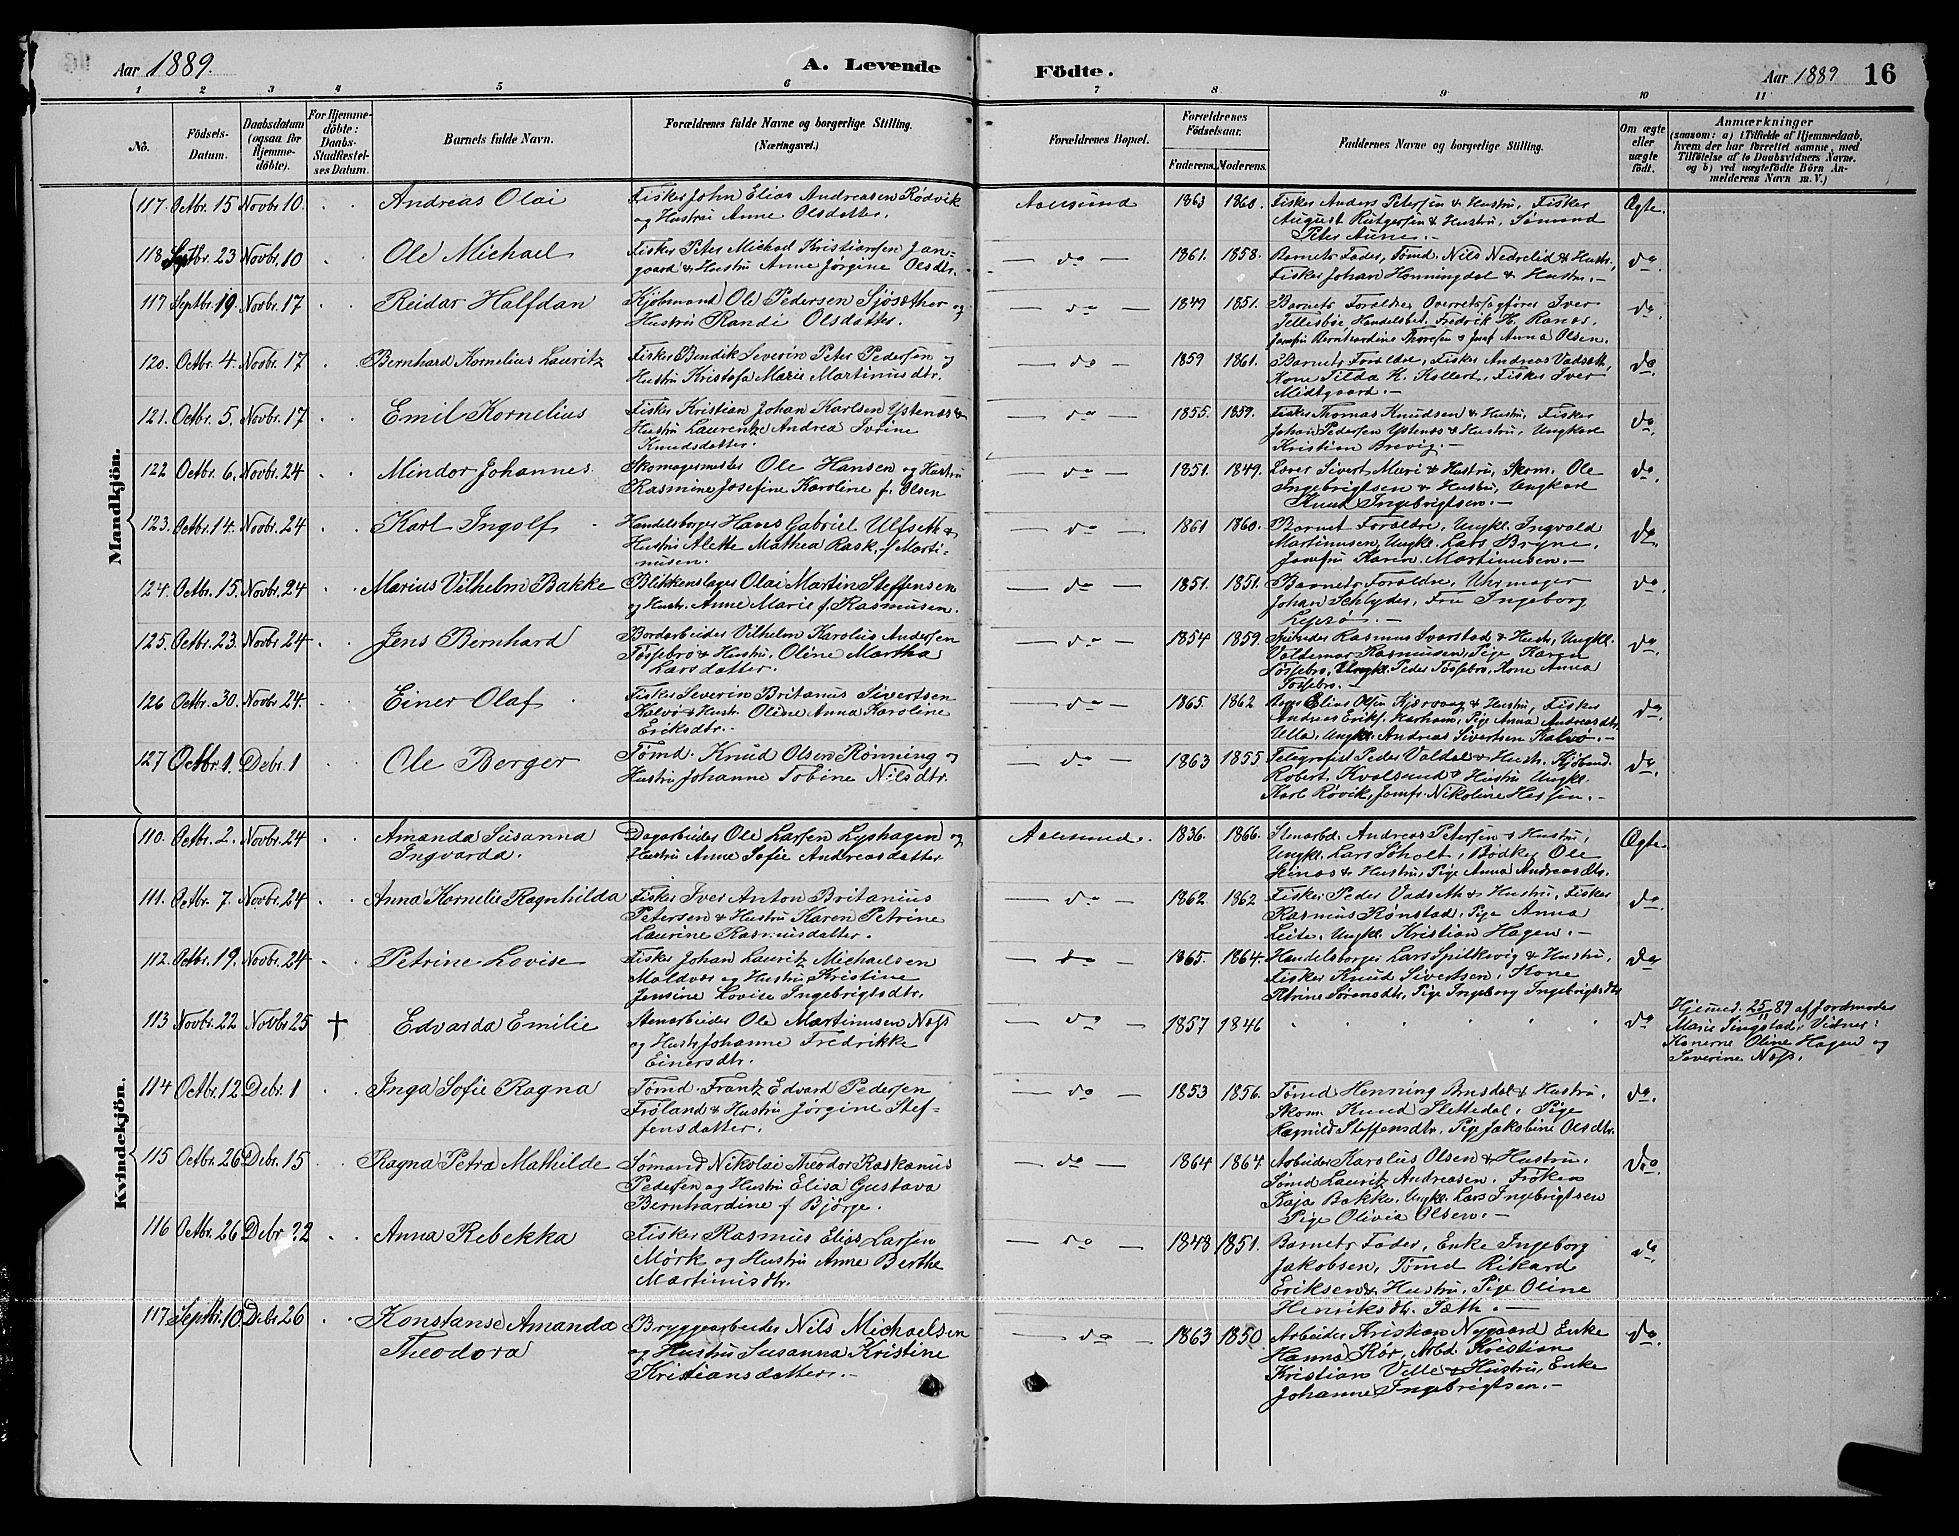 Aar 1889. A. Levende Födte. Aar 1889 16
1 2 3 4 5 6 7 8 9 10 11
No.
Födsels-Datum.
Daabsdatum (ogsaa for Hjemme-döbte).
For Hjemme-döbte: Daabs-Stadfæstel-ses Datum.
Barnets fulde Navn.
Forældrenes fulde Navne og borgerlige Stilling. (Næringsvei.)
Forældrenes Bopæl.
Forældrenes Födselsaar. Faderens. Moderens.
Faddernes Navne og borgerlige Stilling.
Om ægte eller uægte födt.
Anmærkninger
(saasom: a) i Tilfælde af Hjemmedaab,
hvem der har forrettet samme, med
Tilföielse af to Daabsvidners Navne.
og b) ved uægtefödte Börn An-
melderens Navn m. V.)
Mandkjön.
117. Octbr. 15 Novbr. 10. Andreas Olai
Fisker John Elias Andreasen Rødvik
og Hustru Anne Olsdatter.
Aalesund 1863 1860.
Fisker Anders Petersen & Hustru, Fisker
August Rütgersen & Hustru, Sømand
Peter Aune.—
Ægte.
118 Septbr. 23 Novbr. 10 Ole Michael
Fisker Peter Michael Kristiansen Jan-
gaard & Hustru Anne Jørgine Olsdtr.
— do — 1861. 1858.
Barnets Fader, Tømd. Nils Nedrelid & Hustr.,
Fisker Johan Honningdal & Hustru.—
do.
117 Septbr. 19. Novbr. 17 Reidar Halfdan
Kjøbmand Ole Pedersen Sjøsæther og
Hustru Randi Olsdatter.
— do — 1849 1851.
Barnets Forældre, Overretssagfører Iver
Tellesbøe, Handelsbet. Fredrik H. Rønes,
Jomfru Bernhardine Thoresen & Jomf. Anna Olsen.
do.
120. Octbr. 4. Novbr. 17 Bernhard Kornelius Lauritz
Fisker Bendik Severin Peter Pedersen og
Hustru Kristofa Marie Martinusdtr.
— do — 1859 1861.
Barnets Forældre, Fisker Andreas Vadseth,
Kone Tilda K. Kollert, Fisker Iver
Midtgaard.—
do.
121. Octbr. 5. Novbr. 17 Emil Kornelius
Fisker Kristian Johan Karlsen Ystenæs &
Hustru Laurentze Andrea Ivrine
Knudsdatter.
— do — 1855. 1859.
Fisker Thomas Knudsen & Hustru, Fisker
Johan Pedersen Ystenæs & Hustru, Ungkarl
Kristian Brevig.—
do.
122 Octbr. 6. Novbr. 24 Mindor Johannes
Skomagermester Ole Hansen og Hustru
Rasmine Josefine Karoline f. Olsen
— do — 1851. 1849.
Sivert Møri & Hustru, Skom. Ole
Ingebrigtsen & Hustru, Ungkarl
Knud Ingebrigtsen.—
do.
123. Octbr. 14. Novbr. 24 Karl Ingolf
Handelsborger Hans Gabriel Ulfseth &
Hustru Alette Mathea Rask, f. Marti-
nusen.
— do — 1861 1860.
Barnet Forældre, Ungkl. Ingvald
Martinusen, Ungkl. Lars Bryne,
Jomfru Karen Martinusen.—
do.
124. Octbr. 15. Novbr. 24 Marius Vilhelm Bakke
Blikkenslager Olai Martin Steffensen
og Hustr. Anne Marie f. Rasmusen.
— do — 1851. 1851.
Barnets Forældre, Uhrmager
Johan Schlyder, Fru Ingeborg
Lepsø.—
do.
125. Octbr. 23. Novbr. 24 Jens Bernhard
Bordarbeider Vilhelm Karolus Andersen
Tossebro & Hustru, Oline Martha
Larsdatter.
— do — 1854 1859.
Rasmus Svorstad & Hustr, Ungkl.
Valdemar Rasmusen, Pige Karen
Tossebro, Ungkl. Peder Tossebro, Kone Anna
Tossebro.—
do.
126 Octbr. 30. Novbr. 24. Einer Olaf
Fisker Severin Britanus Sivertsen
Kalvø & Hustr. Oline Anna Karoline
Eriksdtr.
— do — 1865. 1862
Elias Olsen Kjervaag & Hustru, Fisker
Andreas Eriks. Harham, Pige Anna Andreasdtr.
Ulla, Ungkl. Andreas Sivertsen Kalvø.—
do.
127 Octbr. 1. Debr. 1 Ole Berger
Tømd. Knud Olsen Rønning og
Hustru Johanne Tobine Nilsdtr.
— do — 1863 1855
Telegrafist Peder Valdal & Hustr. Kjøbmd.
Robert Kvalsund & Hustru Ungkl.
Karl Røvik, Jomfr. Nikoline Hessen.—
do.
Kvindekjön.
110. Octbr. 2. Novbr. 24 Amanda Susanna
Ingvarda.
Dagarbeider Ole Larsen Lyshagen og
Hustru Anna Sofie Andreasdatter
Aalesund. 1836. 1866.
Stenarbd. Andreas Petersen & Hustru,
Ungkl. Lars Søholt, Bødker Ole
& Hustru, Pige Anna Andreasdtr.
Ægte.
111. Octbr. 7. Novbr. 24 Anna Kornelie Ragnhilda
Fisker Iver Anton Britanius
Petersen & Hustru Karen Petrine
Laurine Rasmusdatter.
— do — 1862. 1862
Fisker Peder Vadseth & Hustru, Fisker
Rasmus Rønstad, Pige Anna
Leite, Ungkl. Kristian Hagen.—
do.
112. Octbr. 19. Novbr. 24 Petrine Lovise
Fisker Johan Lauritz Michaelsen
Moldvær og Hustru Kristine
Jensine Lovise Ingebrigtsdtr.
— do — 1865. 1864.
Handelsborger Lars Spilkevig & Hustru,
Fisker Knud Sivertsen, Kone
Petrine Sørensdtr., Pige Ingeborg Ingebrigtsdtr
do
113 Novbr. 22 Novbr. 25 † Edvarda Emilie
Stenarbeider Ole Martinusen Næss
og Hustr. Johanne Fredrikke
Einersdtr.
— do — 1857 1846 " " " " "
do
Hjemmed. 25/11 89 af Jordmoder
Marie Tingstad, Vidner:
Konerne Oline Hagen og
Severine Næss.
114 Octbr. 12 Debr. 1 Inga Sofie Ragna
Tømd. Frantz Edvard Pedersen
Frøland & Hustru Jørgine Stef-
fensdatter.
— do — 1853 1856.
Tømd Henning Arnsdal & Hustru,
Skom. Knud Slettedal, Pige
Ragnild Steffensdtr. Pige Jakobine Olsdtr.
do.
115 Octbr. 26 Debr. 15 Ragna Petra Mathilde
Sømand Nikolai Theodor Raskanus
Pedersen og Hustru Elisa Gustava
Bernhardine f Bjørge.
— do — 1864 1864
Arbeider Karolus Olsen & Hustru,
Sømd Lauritz Andreasen, Frøken
Kaja Bakke, Ungkl. Lars Ingebrigtsen
Pige Olivia Olsen.—
do.
116 Octbr. 26 Debr. 22 Anna Rebekka
Fisker Rasmus Elias Larsen
Mørk og Hustru Anne Berthe
Martinusdtr.
— do — 1848 1851.
Barnets Fader, Enke Ingeborg
Jakobsen, Tømd Rikard
Eriksen & Hustru, Pige Oline
Henriksdtr. Sæth.—
do
117 Septbr. 10 Debr. 26 Konstanse Amanda
Theodora
Bryggearbeider Nils Michaelsen
og Hustru Susanna Kristine
Kristiansdatter.—
— do — 1863 1850
Arbeider Kristian Nygaard, Enke
Hanna Rør, Arbd. Kristian
Kristian Ville & Hustru, Enke
Johanne Ingebrigtsen.—
do.